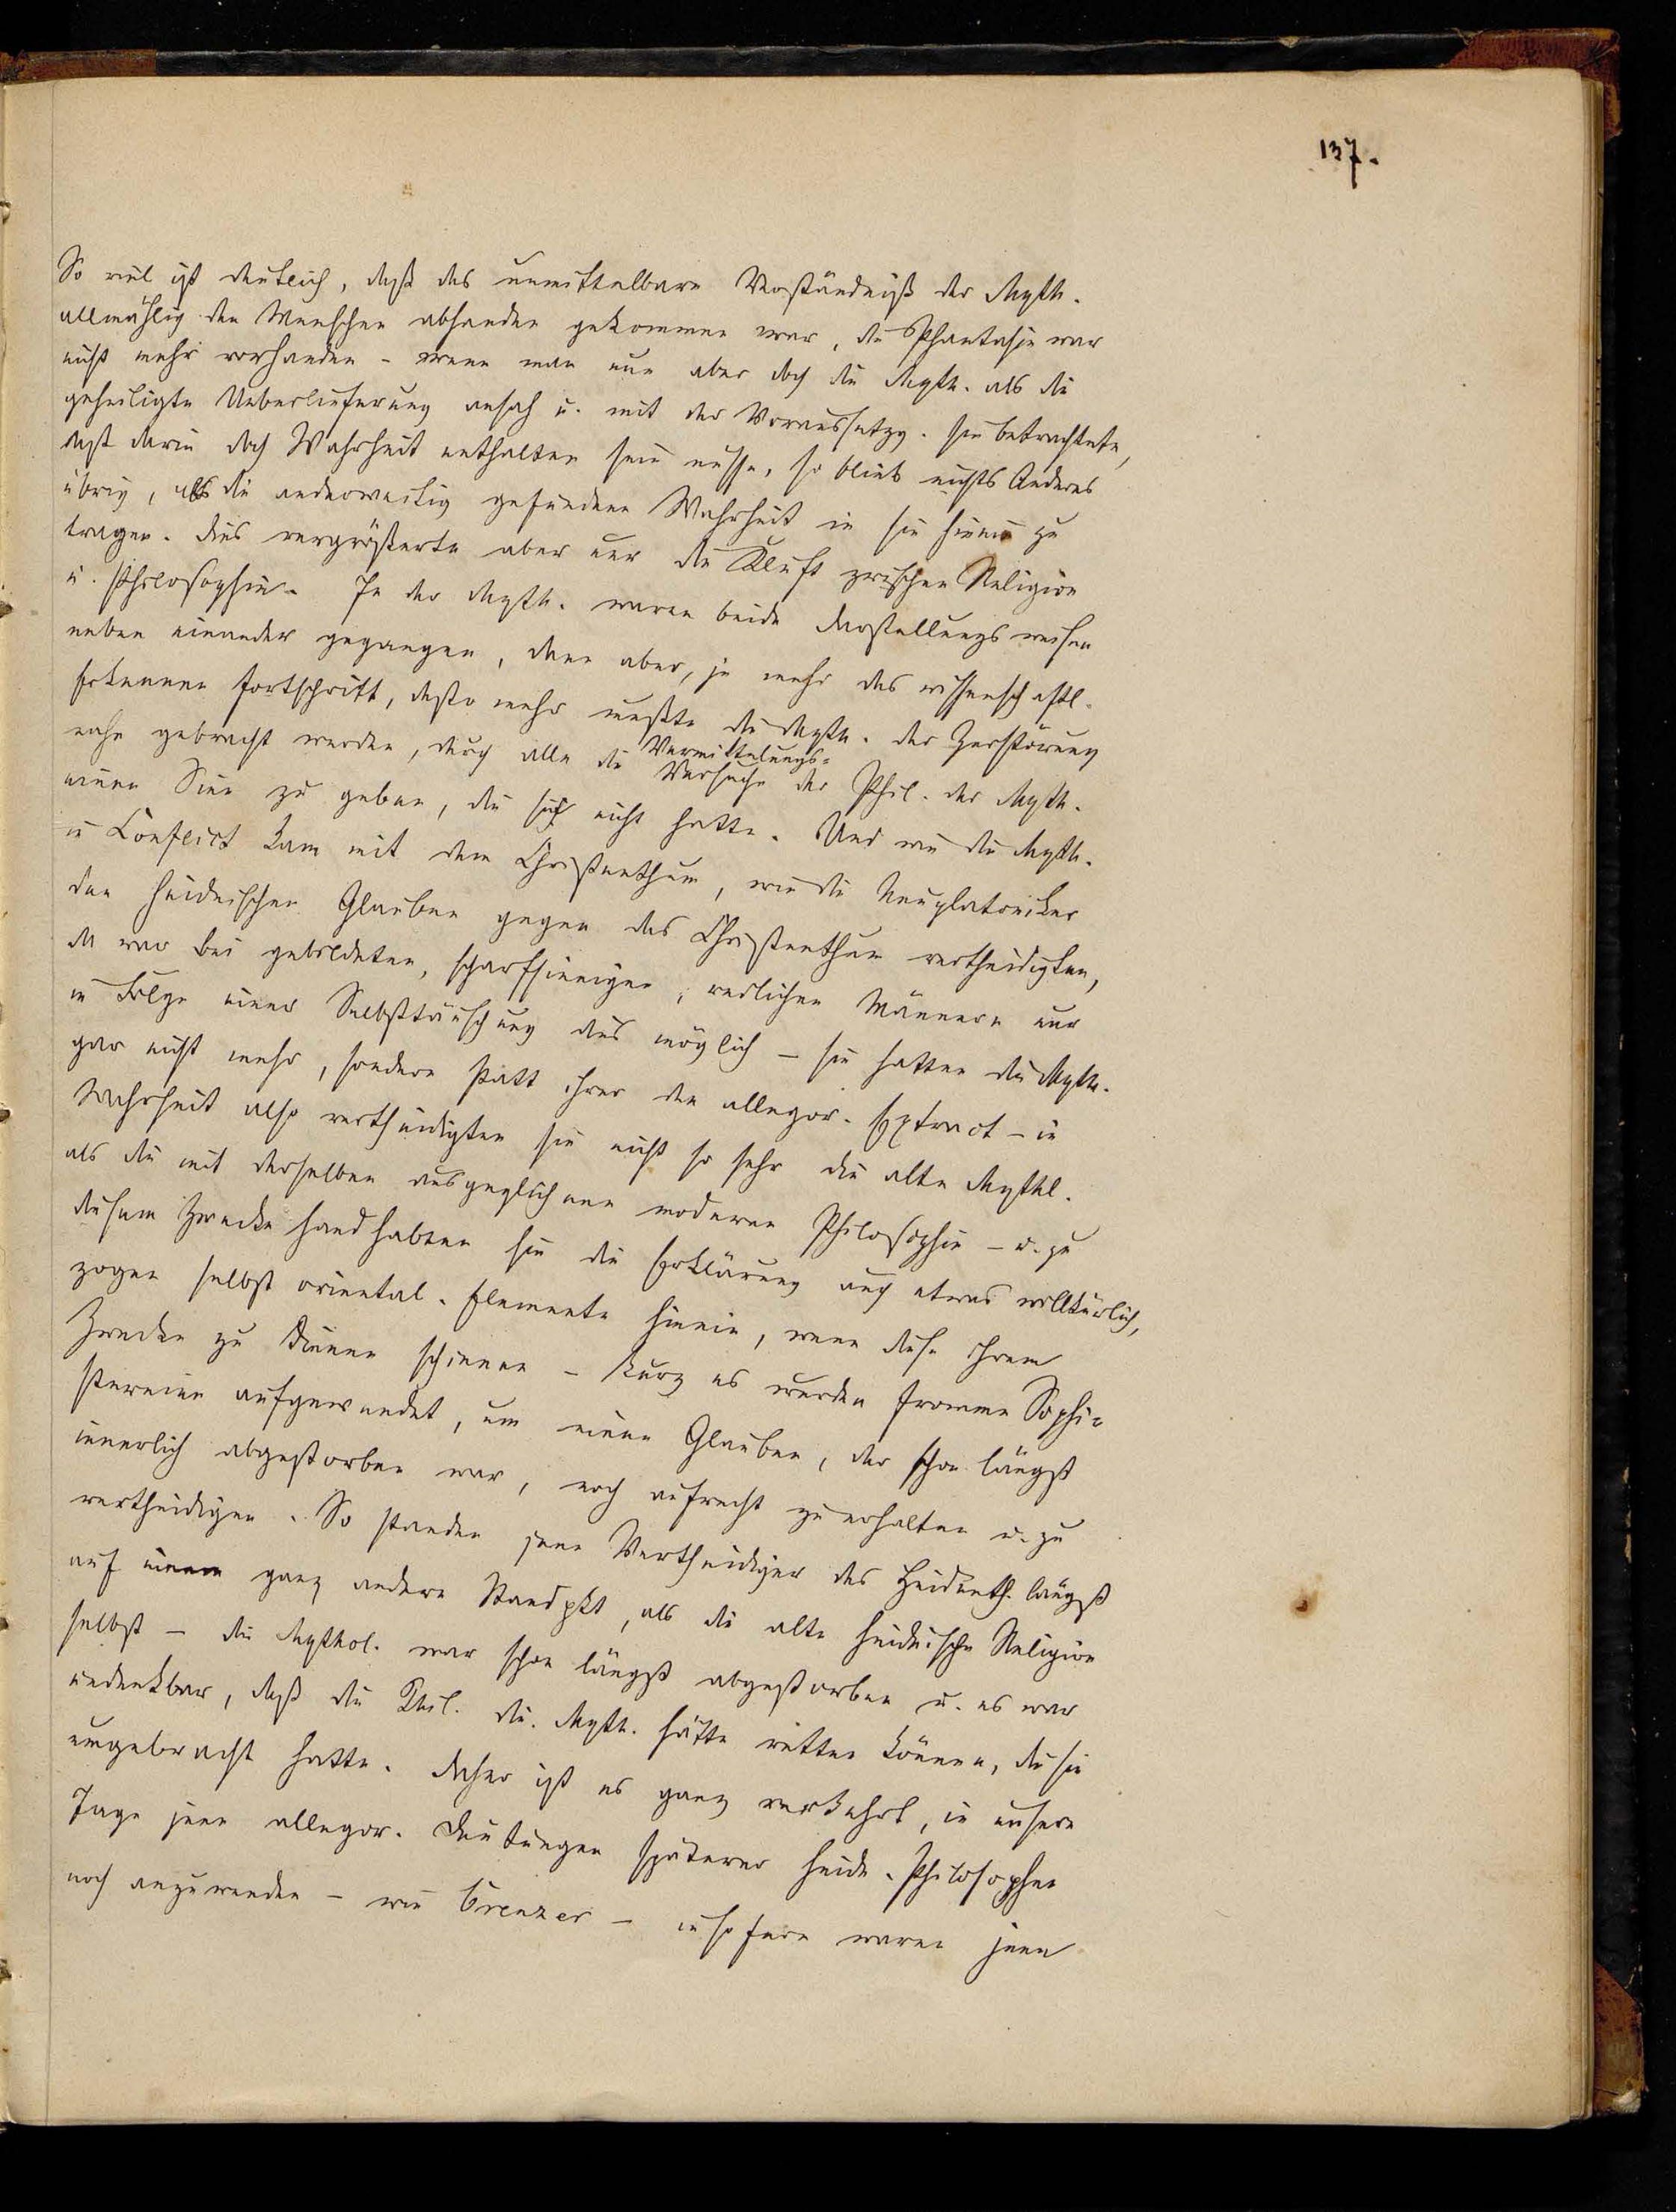 137.
So viel ist deutlich, daß das unmittelbare Verständniß der Myth.
allmählig den Menschen abhanden gekommen war, die Phantasie war
nicht mehr vorhanden - wenn man nun aber doch die Myth. als die
geheiligte Ueberlieferung ansah u. mit der Voraussetzg. sie betrachtete,
daß darin doch Wahrheit enthalten sein müsse, so blieb nichts Anderes
übrig, als die anderweitig gefundene Wahrheit in sie hinein zu
tragen. Dies vergrößerte aber nur die Kluft zwischen Religion
u. Philosophie. In der Myth. waren beide Darstellungsweisen
neben einander gegangen, denn aber, je mehr das wissenschaftl.
Erkennen fortschritt, desto mehr mußte die Myth. der Zerstörung
nahe gebracht werden, durch alle die Vermittelungs-
Versuche der Phil. der Myth.
einen Sinn zu geben, die sich nicht hatte. Und wie die Myth.
in Conflict kam mit dem Christenthum, wie die Neuplatoniker
den heidnischen Glauben gegen das Christenthum vertheidigten,
da war bei gebildeten, scharfsinnigen, redlichen Männern nur
in Folge einer Selbsttäuschung dies möglich – sie hatten die Myth.
gar nicht mehr, sondern statt ihrer den allegor. Extract – in
Wahrheit also vertheidigten sie nicht so sehr die alte Mythl.
als die mit derselben ausgeglichene moderne Philosophie – u. zu
diesem Zwecke handhabten sie die Erklärung auch etwas willkürlich,
zogen selbst oriental. Elemente hinein, wenn diese ihrem
Zwecke zu dienen schienen – kurz es wurden fromme Sophi-
stereien aufgewendet, um einen Glauben, der schon längst
innerlich abgestorben war, noch aufrecht zu erhalten u. zu
vertheidigen. So standen jene Vertheidiger des Heidenth. längst
auf einem ganz andern Standpkt, als die alte heidnische Religion
selbst – die Mythol. war schon längst abgestorben u. es war
undenkbar, daß die Phil. die Myth. hätte retten können, die sie
umgebracht hatte. Daher ist es ganz verkehrt, in unsern
Tage jene allegor. Deutungen späterer heidn. Philosophen
noch anzuwenden – wie Creuzer – insofern waren jene